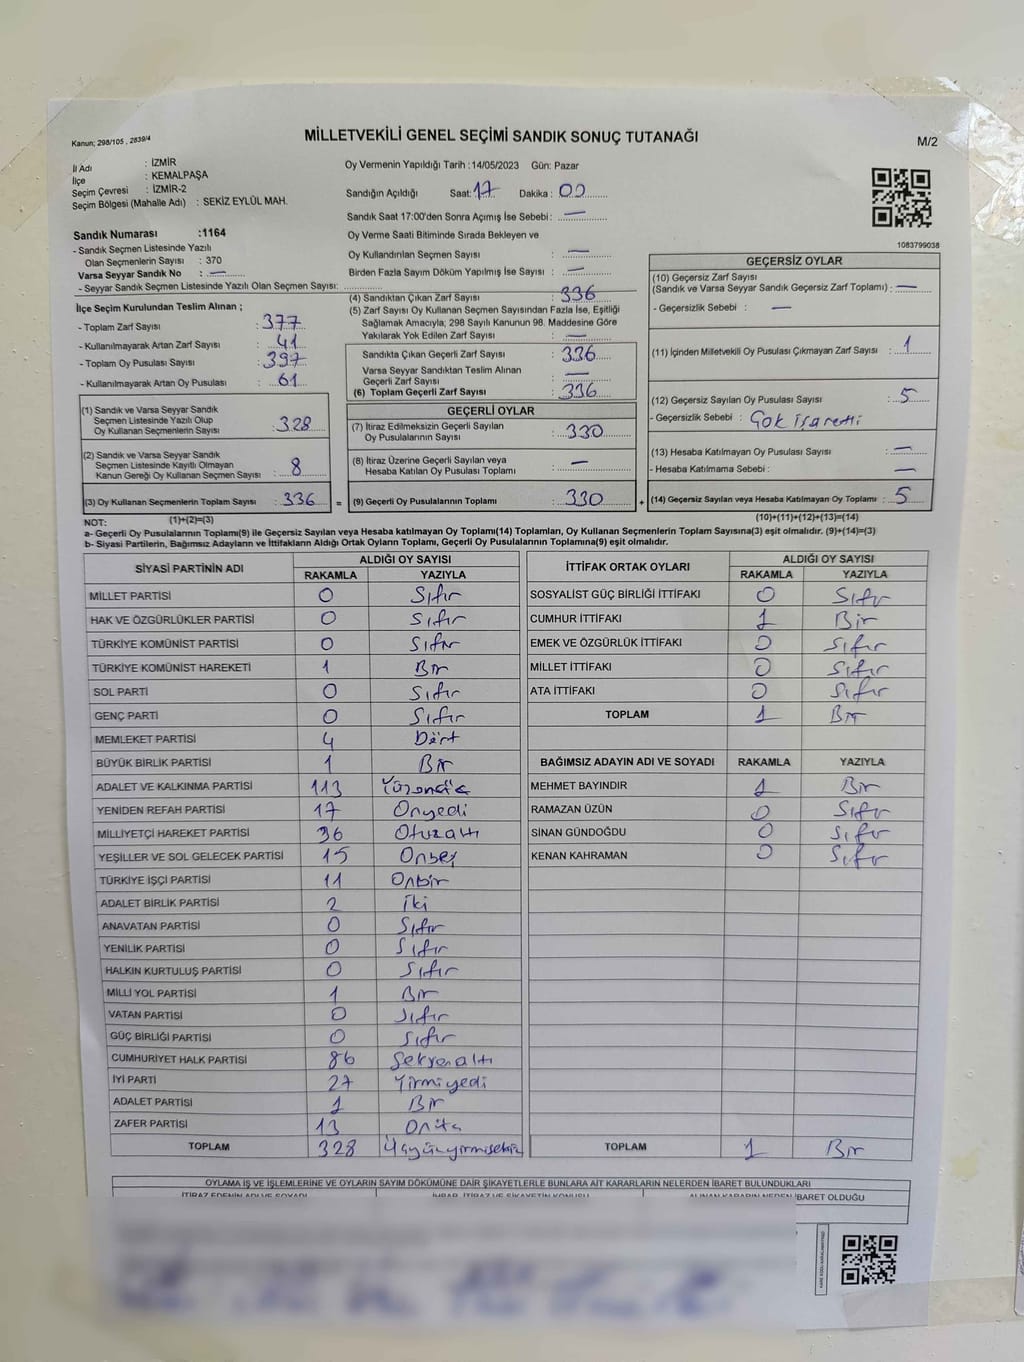 Kanun; 298/105 , 2839/4
MİLLETVEKİLİ GENEL SEÇİMİ SANDIK SONUÇ TUTANAĞI
M/2
İl Adı : İZMİR
İlçe : KEMALPAŞA
Seçim Çevresi : İZMİR-2
Seçim Bölgesi (Mahalle Adı) : SEKİZ EYLÜL MAH.
Oy Vermenin Yapıldığı Tarih :14/05/2023 Gün: Pazar
Sandığın Açıldığı Saat: 17 Dakika : 00
Sandık Saat 17:00'den Sonra Açımış İse Sebebi : —
Oy Verme Saati Bitiminde Sırada Bekleyen ve
Oy Kullandırılan Seçmen Sayısı : —
Birden Fazla Sayım Döküm Yapılmış İse Sayısı : —
1083799038
Sandık Numarası :1164
- Sandık Seçmen Listesinde Yazılı
Olan Seçmenlerin Sayısı : 370
Varsa Seyyar Sandık No : —
- Seyyar Sandık Seçmen Listesinde Yazılı Olan Seçmen Sayısı:
İlçe Seçim Kurulundan Teslim Alınan ;
- Toplam Zarf Sayısı : 377
- Kullanılmayarak Artan Zarf Sayısı : 41
- Toplam Oy Pusulası Sayısı : 397
- Kullanılmayarak Artan Oy Pusulası : 61
(1) Sandık ve Varsa Seyyar Sandık
Seçmen Listesinde Yazılı Olup
Oy Kullanan Seçmenlerin Sayısı : 328
(2) Sandık ve Varsa Seyyar Sandık
Seçmen Listesinde Kayıtlı Olmayan
Kanun Gereği Oy Kullanan Seçmen Sayısı : 8
(3) Oy Kullanan Seçmenlerin Toplam Sayısı : 336 =
(4) Sandıktan Çıkan Zarf Sayısı : 336
(5) Zarf Sayısı Oy Kullanan Seçmen Sayısından Fazla İse, Eşitliği
Sağlamak Amacıyla; 298 Sayılı Kanunun 98. Maddesine Göre
Yakılarak Yok Edilen Zarf Sayısı : —
Sandıkta Çıkan Geçerli Zarf Sayısı : 336
Varsa Seyyar Sandıktan Teslim Alınan
Geçerli Zarf Sayısı : —
(6) Toplam Geçerli Zarf Sayısı : 336
GEÇERLİ OYLAR
(7) İtiraz Edilmeksizin Geçerli Sayılan
Oy Pusulalarının Sayısı : 330
(8) İtiraz Üzerine Geçerli Sayılan veya
Hesaba Katılan Oy Pusulası Toplamı : —
(9) Geçerli Oy Pusulalarının Toplamı : 330 +
GEÇERSİZ OYLAR
(10) Geçersiz Zarf Sayısı
(Sandık ve Varsa Seyyar Sandık Geçersiz Zarf Toplamı) : —
- Geçersizlik Sebebi : —
(11) İçinden Milletvekili Oy Pusulası Çıkmayan Zarf Sayısı : 1
(12) Geçersiz Sayılan Oy Pusulası Sayısı : 5
- Geçersizlik Sebebi : Çok işaretli
(13) Hesaba Katılmayan Oy Pusulası Sayısı : —
- Hesaba Katılmama Sebebi : —
(14) Geçersiz Sayılan veya Hesaba Katılmayan Oy Toplamı : 5
NOT: (1)+(2)=(3) (10)+(11)+(12)+(13)=(14)
a- Geçerli Oy Pusulalarının Toplamı(9) ile Geçersiz Sayılan veya Hesaba katılmayan Oy Toplamı(14) Toplamları, Oy Kullanan Seçmenlerin Toplam Sayısına(3) eşit olmalıdır. (9)+(14)=(3)
b- Siyasi Partilerin, Bağımsız Adayların ve İttifakların Aldığı Ortak Oyların Toplamı, Geçerli Oy Pusulalarının Toplamına(9) eşit olmalıdır.
SİYASİ PARTİNİN ADI ALDIĞI OY SAYISI
RAKAMLA YAZIYLA
MİLLET PARTİSİ 0 Sıfır
HAK VE ÖZGÜRLÜKLER PARTİSİ 0 Sıfır
TÜRKİYE KOMÜNİST PARTİSİ 0 Sıfır
TÜRKİYE KOMÜNİST HAREKETİ 1 Bir
SOL PARTİ 0 Sıfır
GENÇ PARTİ 0 Sıfır
MEMLEKET PARTİSİ 4 Dört
BÜYÜK BİRLİK PARTİSİ 1 Bir
ADALET VE KALKINMA PARTİSİ 113
YENİDEN REFAH PARTİSİ 17 Onyedi
MİLLİYETÇİ HAREKET PARTİSİ 36 Otuzaltı
YEŞİLLER VE SOL GELECEK PARTİSİ 15 Onbeş
TÜRKİYE İŞÇİ PARTİSİ 11 Onbir
ADALET BİRLİK PARTİSİ 2 iki
ANAVATAN PARTİSİ 0 Sıfır
YENİLİK PARTİSİ 0 Sıfır
HALKIN KURTULUŞ PARTİSİ 0 Sıfır
MİLLİ YOL PARTİSİ 1 Bir
VATAN PARTİSİ 0 Sıfır
GÜÇ BİRLİĞİ PARTİSİ 0 Sıfır
CUMHURİYET HALK PARTİSİ 86 Seksenaltı
İYİ PARTİ 27 Yirmiyedi
ADALET PARTİSİ 1 Bir
ZAFER PARTİSİ 13 Onüç
TOPLAM 328 Üçyüzyirmisekiz
İTTİFAK ORTAK OYLARI ALDIĞI OY SAYISI
RAKAMLA YAZIYLA
SOSYALİST GÜÇ BİRLİĞİ İTTİFAKI 0 Sıfır
CUMHUR İTTİFAKI 1 Bir
EMEK VE ÖZGÜRLÜK İTTİFAKI 0 Sıfır
MİLLET İTTİFAKI 0 Sıfır
ATA İTTİFAKI 0 Sıfır
TOPLAM 1 Bir
BAĞIMSIZ ADAYIN ADI VE SOYADI RAKAMLA YAZIYLA
MEHMET BAYINDIR 1 Bir
RAMAZAN ÜZÜN 0 Sıfır
SİNAN GÜNDOĞDU 0 Sıfır
KENAN KAHRAMAN 0 Sıfır
TOPLAM 1 Bir
OYLAMA İŞ VE İŞLEMLERİNE VE OYLARIN SAYIM DÖKÜMÜNE DAİR ŞİKAYETLERLE BUNLARA AİT KARARLARIN NELERDEN İBARET BULUNDUKLARI
İTİRAZ EDENİN ADI VE SOYADI İHBAR, İTİRAZ VE ŞİKAYETİN KONUSU ALINAN KARARIN NEDEN İBARET OLDUĞU